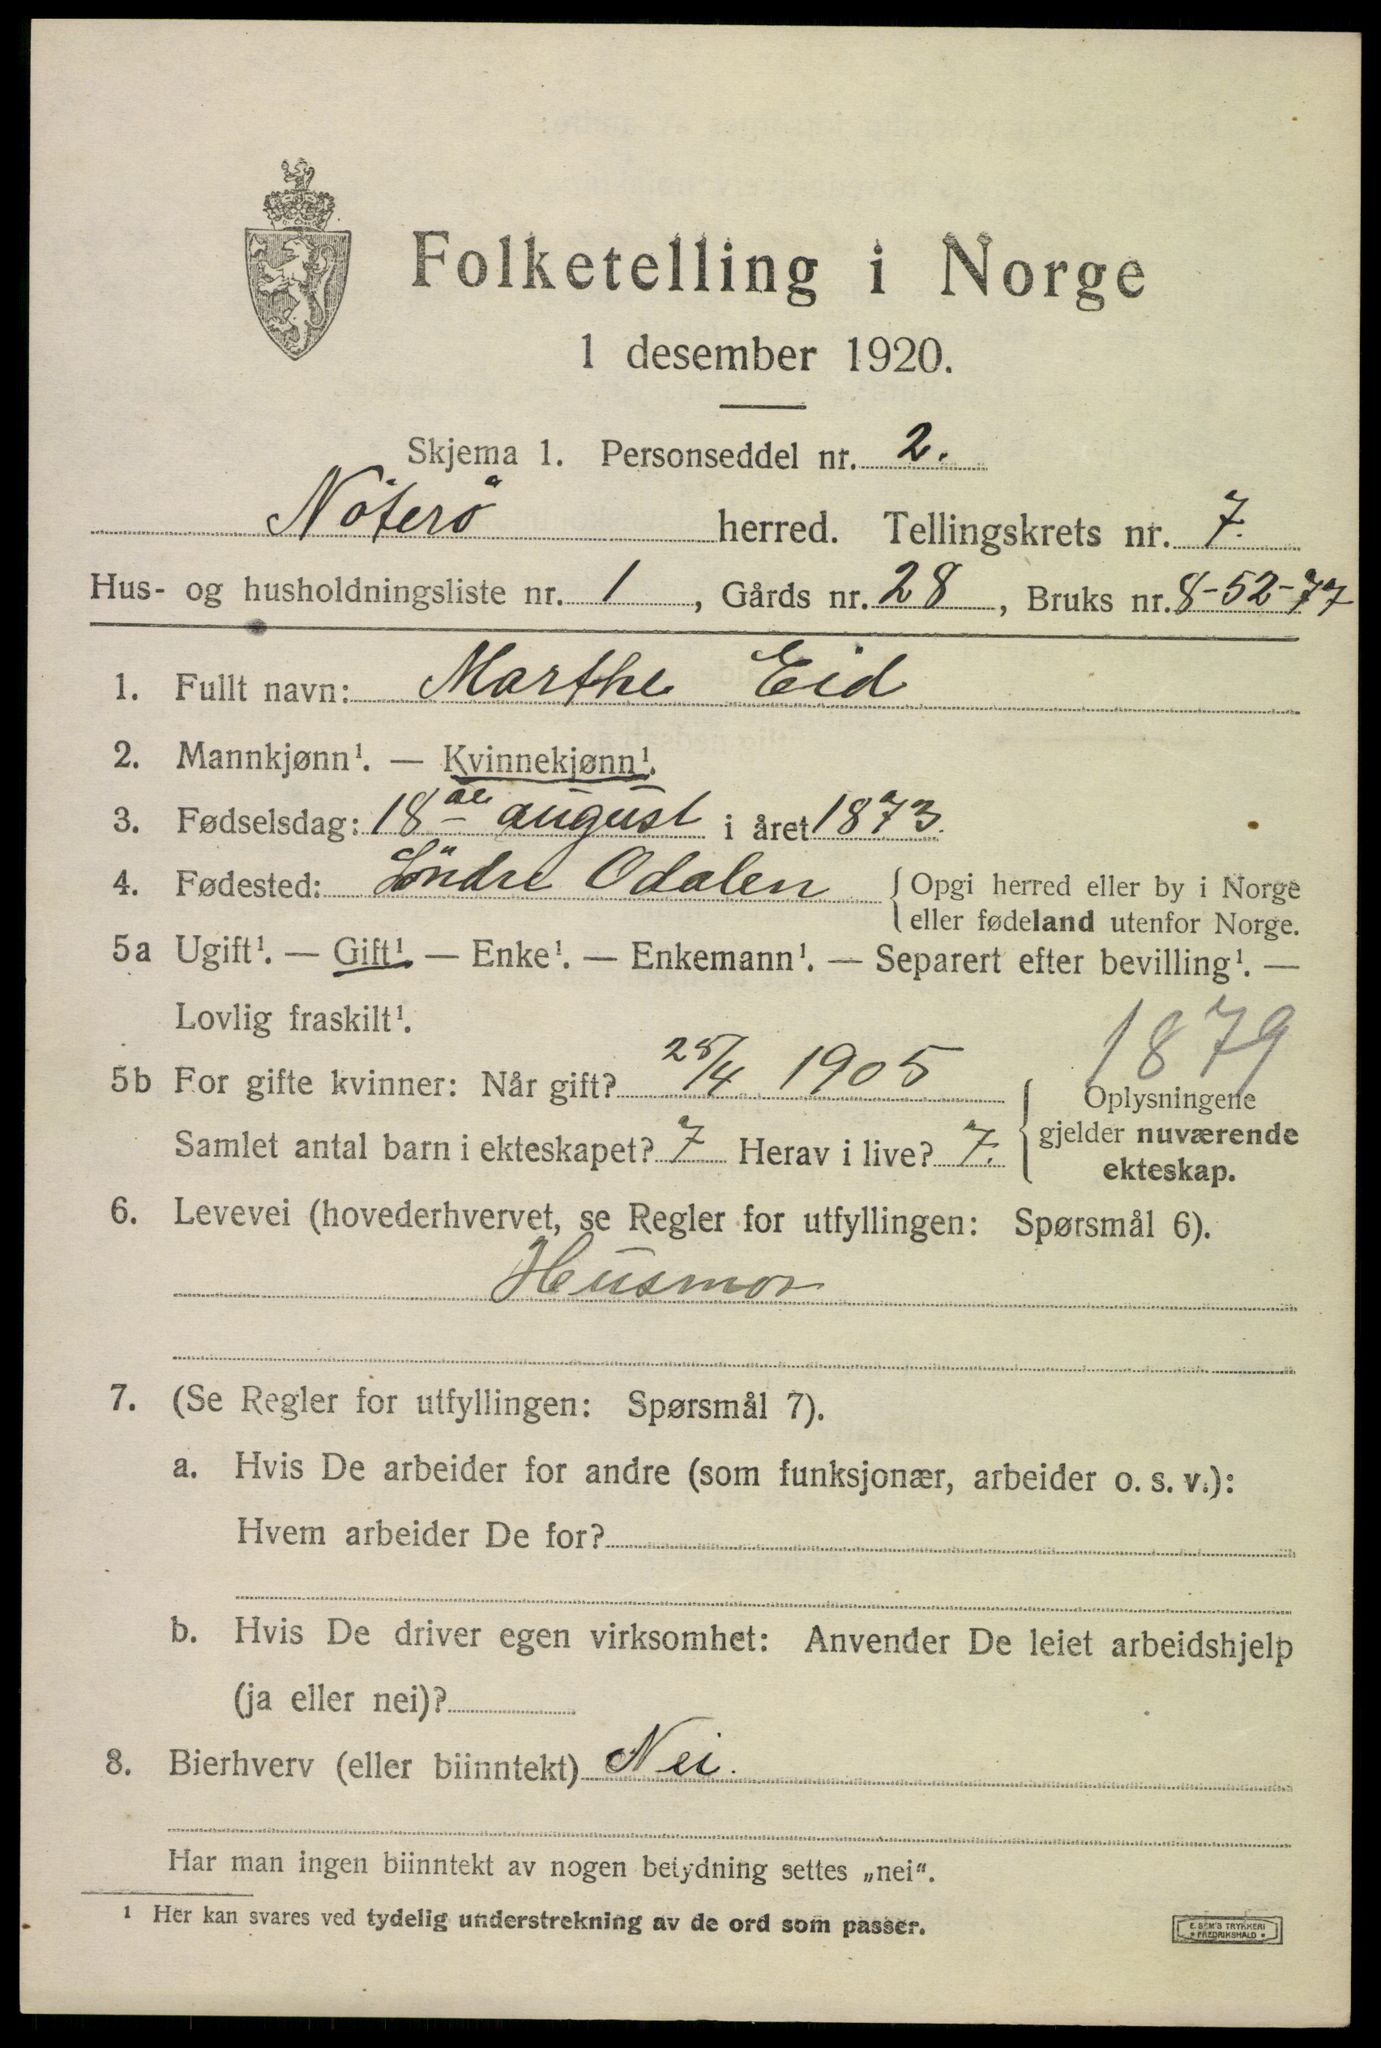 Folketelling i Norge
1 desember 1920.
Skjema 1. Personseddel nr. 2.
Nöterö herred. Tellingskrets nr. 7.
Hus- og husholdningsliste nr. 1, Gårds nr. 28, Bruks nr. 8-52-77
1. Fullt navn: Marthe Eid
2. Mannkjønn¹. — Kvinnekjønn¹.
3. Fødselsdag: 18de august i året 1873.
4. Fødested: Söndre Odalen { Opgi herred eller by i Norge
eller fødeland utenfor Norge.
5a Ugift¹. — Gift¹ — Enke¹. — Enkemann¹. — Separert efter bevilling¹. —
Lovlig fraskilt¹.
1879
5b For gifte kvinner: Når gift? 25/4 1905
Samlet antal barn i ekteskapet? 7 Herav i live? 7.
{ Oplysningene
gjelder nuværende
ekteskap.
6. Levevei (hovederhvervet, se Regler for utfyllingen: Spørsmål 6).
Husmor
7. (Se Regler for utfyllingen: Spørsmål 7).
a. Hvis De arbeider for andre (som funksjonær, arbeider o. s. v.):
Hvem arbeider De for?
b. Hvis De driver egen virksomhet: Anvender De leiet arbeidshjelp
(ja eller nei)?
8. Bierhverv (eller biinntekt) Nei.
Har man ingen biinntekt av nogen betydning settes „nei“.
1 Her kan svares ved tydelig understrekning av de ord som passer.
E. SEM'S TRYKKERI
* FREDRIKSHALD *